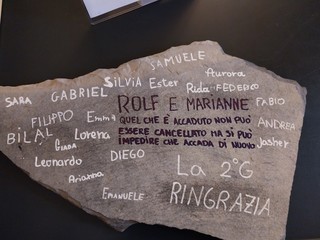 SAMUELE
Aurora
SARA GABRIEL SILVIA Ester Rida FEDERICO
ROLF E MARIANNE FABIO
FILIPPO Emma
QUEL CHE È ACCADUTO NON PUÒ
BILAL Lorena ANDREA
ESSERE CANCELLATO MA SI PUÒ
GIADA
IMPEDIRE CHE ACCADA DI NUOVO Jasher
Leonardo DIEGO
La 2°G
Arianna
EMANUELE RINGRAZIA